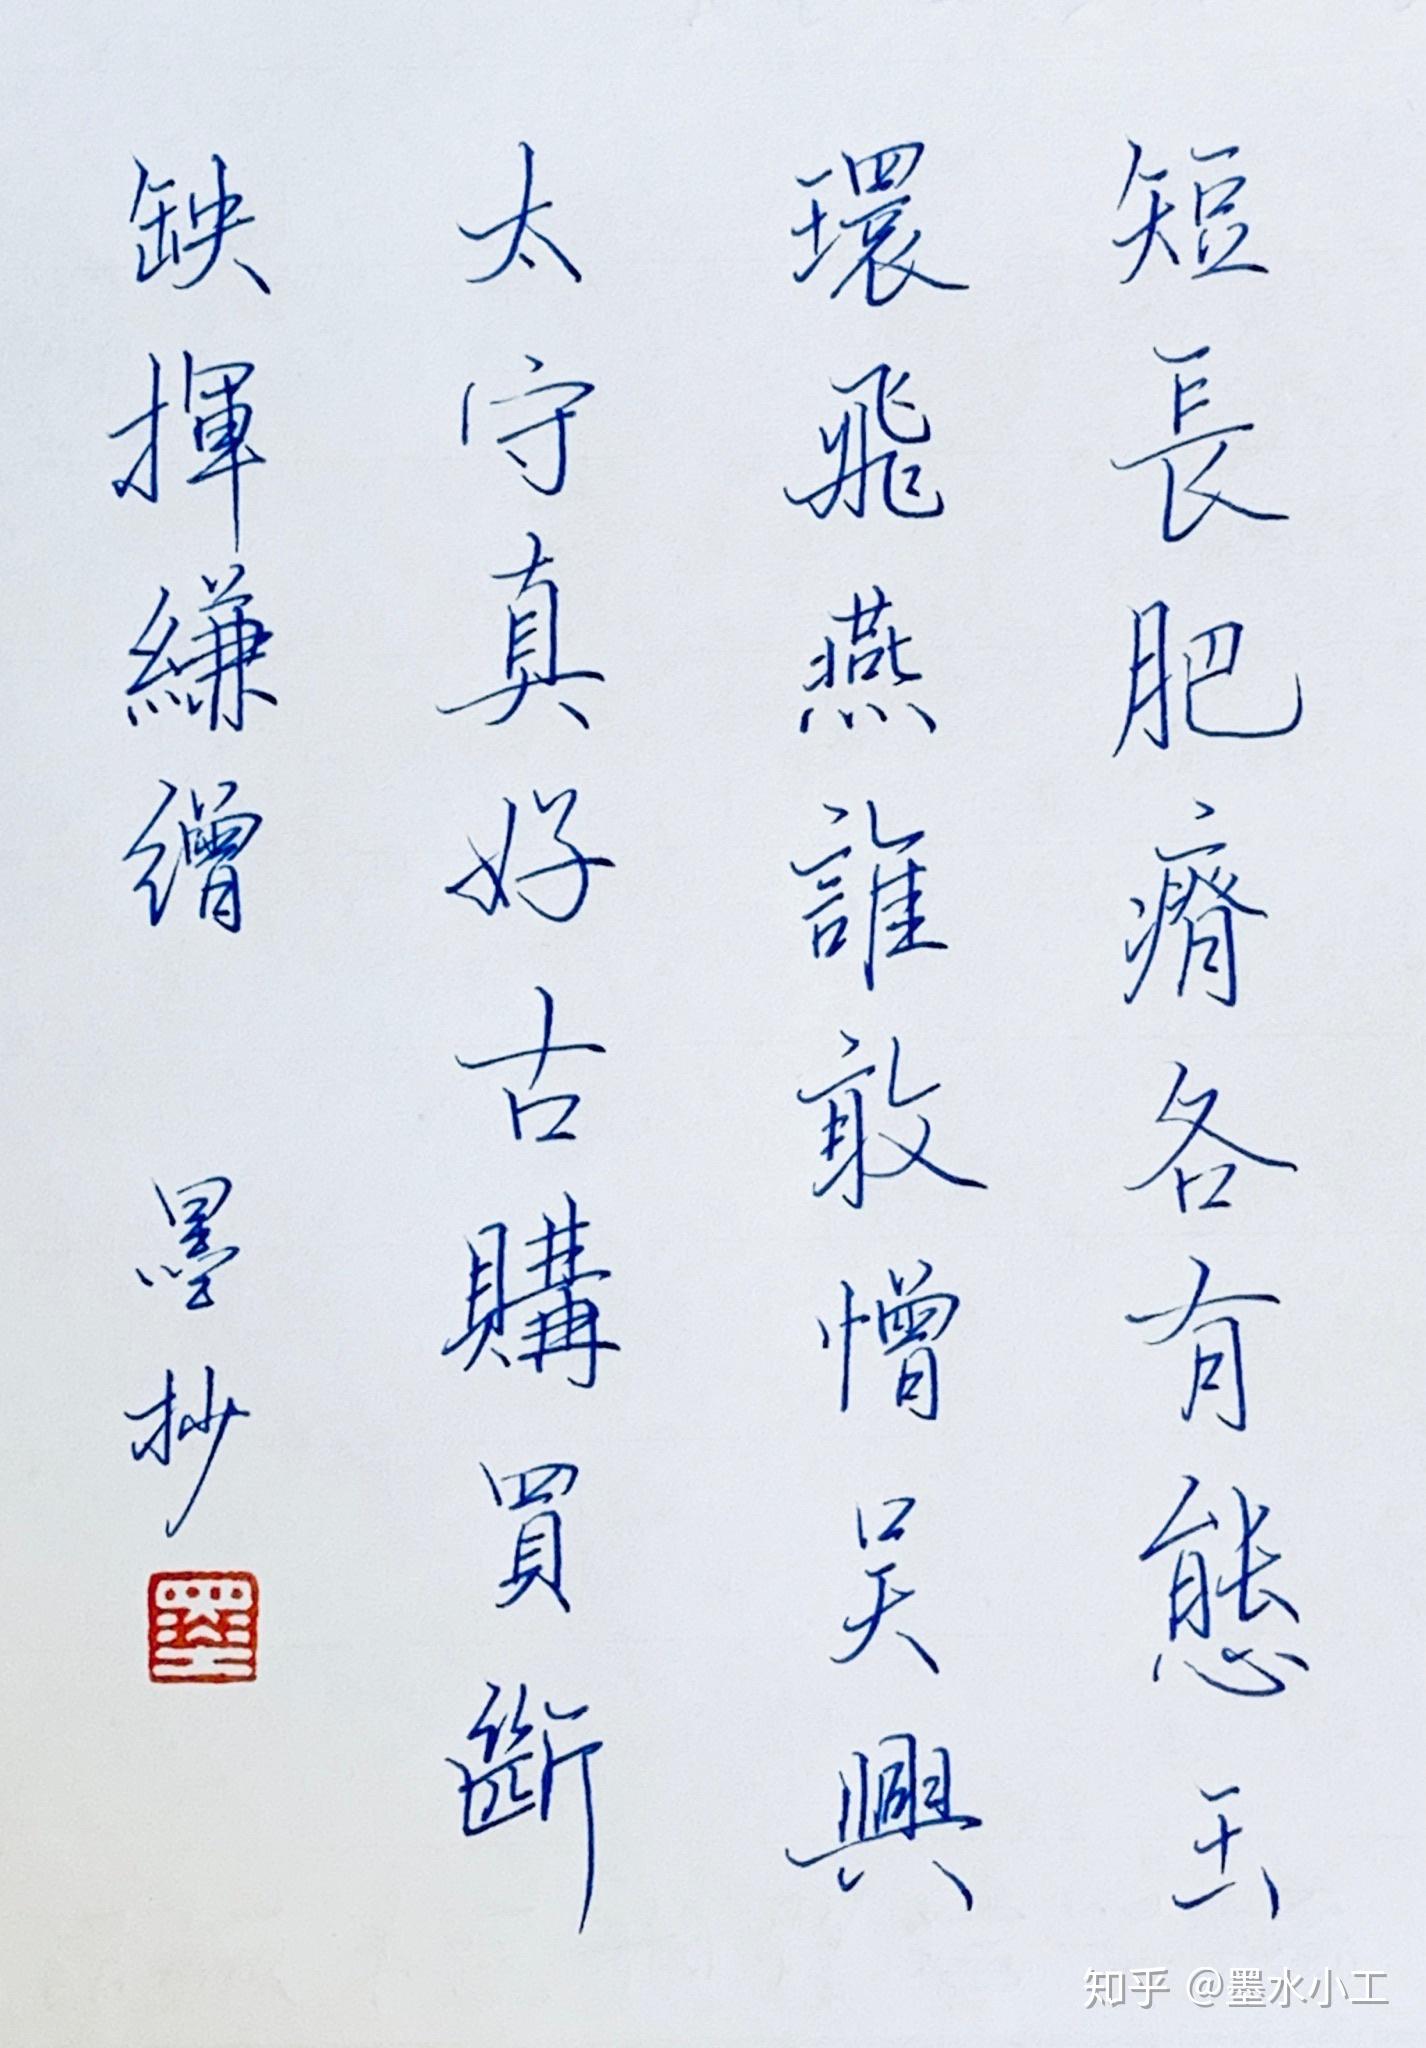 短長肥瘠各有態玉
環飛燕誰敢憎吳興
太守真好古購買斷
缺揮縑繒
墨抄
墨
知乎 @墨水小工